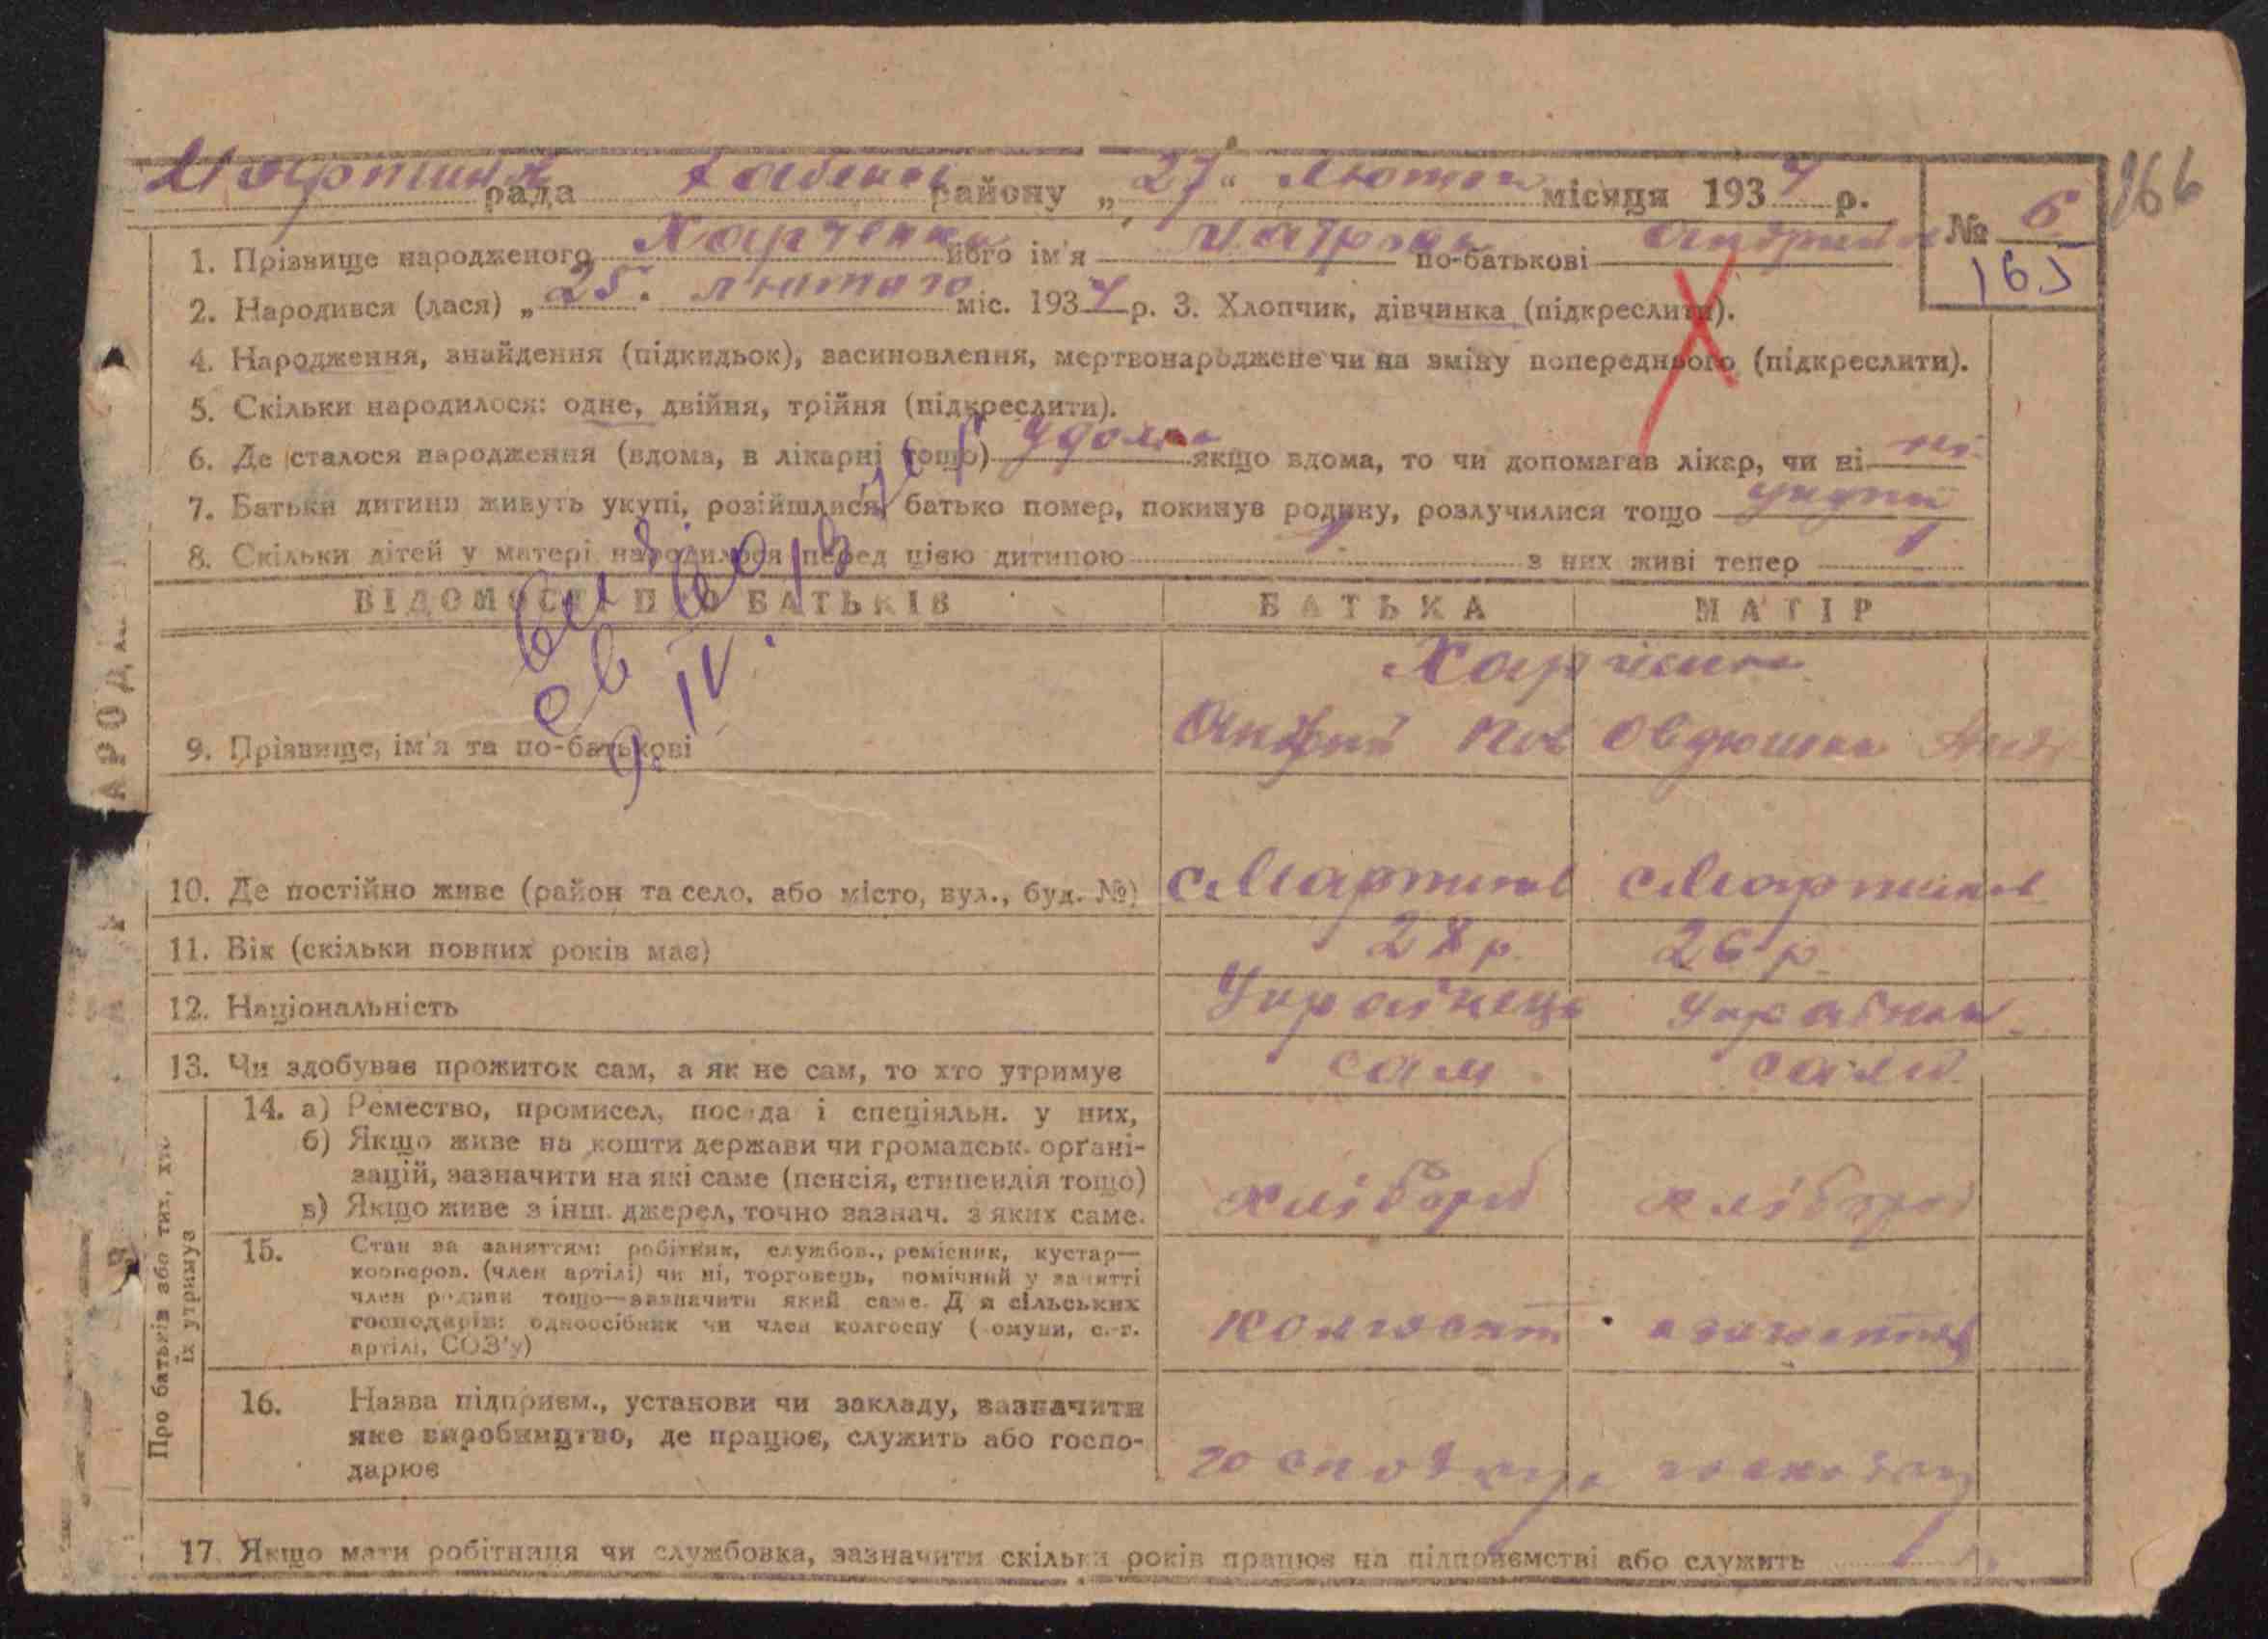 рада району „27“ Лютого місяця 1934 р.
166
№ 6
165
1. Прізвище народженого Харченко його ім'я по-батькові
2. Народився (лася) „25“ лютого міс. 1934 р. 3. Хлопчик, дівчинка (підкреслити).
4. Народження, знайдення (підкидьок), засиновлення, мертвонароджене чи на зміну попереднього (підкреслити).
5. Скільки народилося: одне, двійня, трійня (підкреслити).
6. Де сталося народження (вдома, в лікарні тощо) удома якщо вдома, то чи допомагав лікар, чи ні ні
7. Батьки дитини живуть укупі, розійшлися, батько помер, покинув родину, розлучилися тощо укупі
8. Скільки дітей у матері народилося перед цією дитиною 1 з них живі тепер 1
ВІДОМОСТІ ПРО БАТЬКІВ БАТЬКА МАТІР
Харченко
9. Прізвище, ім'я та по-батькові Андрій
10. Де постійно живе (район та село, або місто, вул., буд. №)
11. Вік (скільки повних років має) 28 р. 26 р.
12. Національність Українець
13. Чи здобуває прожиток сам, а як не сам, то хто утримує сам сама
Про батьків або тих, хто їх утримує
14. а) Ремество, промисел, посада і спеціяльн. у них,
б) Якщо живе на кошти держави чи громадськ. орґані-
зацій, зазначити на які саме (пенсія, стипендія тощо)
в) Якщо живе з інш. джерел, точно зазнач. з яких саме.
хлібороб хлібороб
15. Стан за заняттям: робітник, службов., ремісник, кустар—
кооперов. (член артілі) чи ні, торговець, помічний у занятті
член родини тощо—зазначити який саме. Для сільських
господарів: одноосібник чи член колгоспу (комуни, с.-г.
артілі, СОЗ'у)
16. Назва підприєм., установи чи закладу, зазначити
яке виробництво, де працює, служить або госпо-
дарює
17. Якщо мати робітниця чи службовка, зазначити скільки років працює на підприємстві або служить